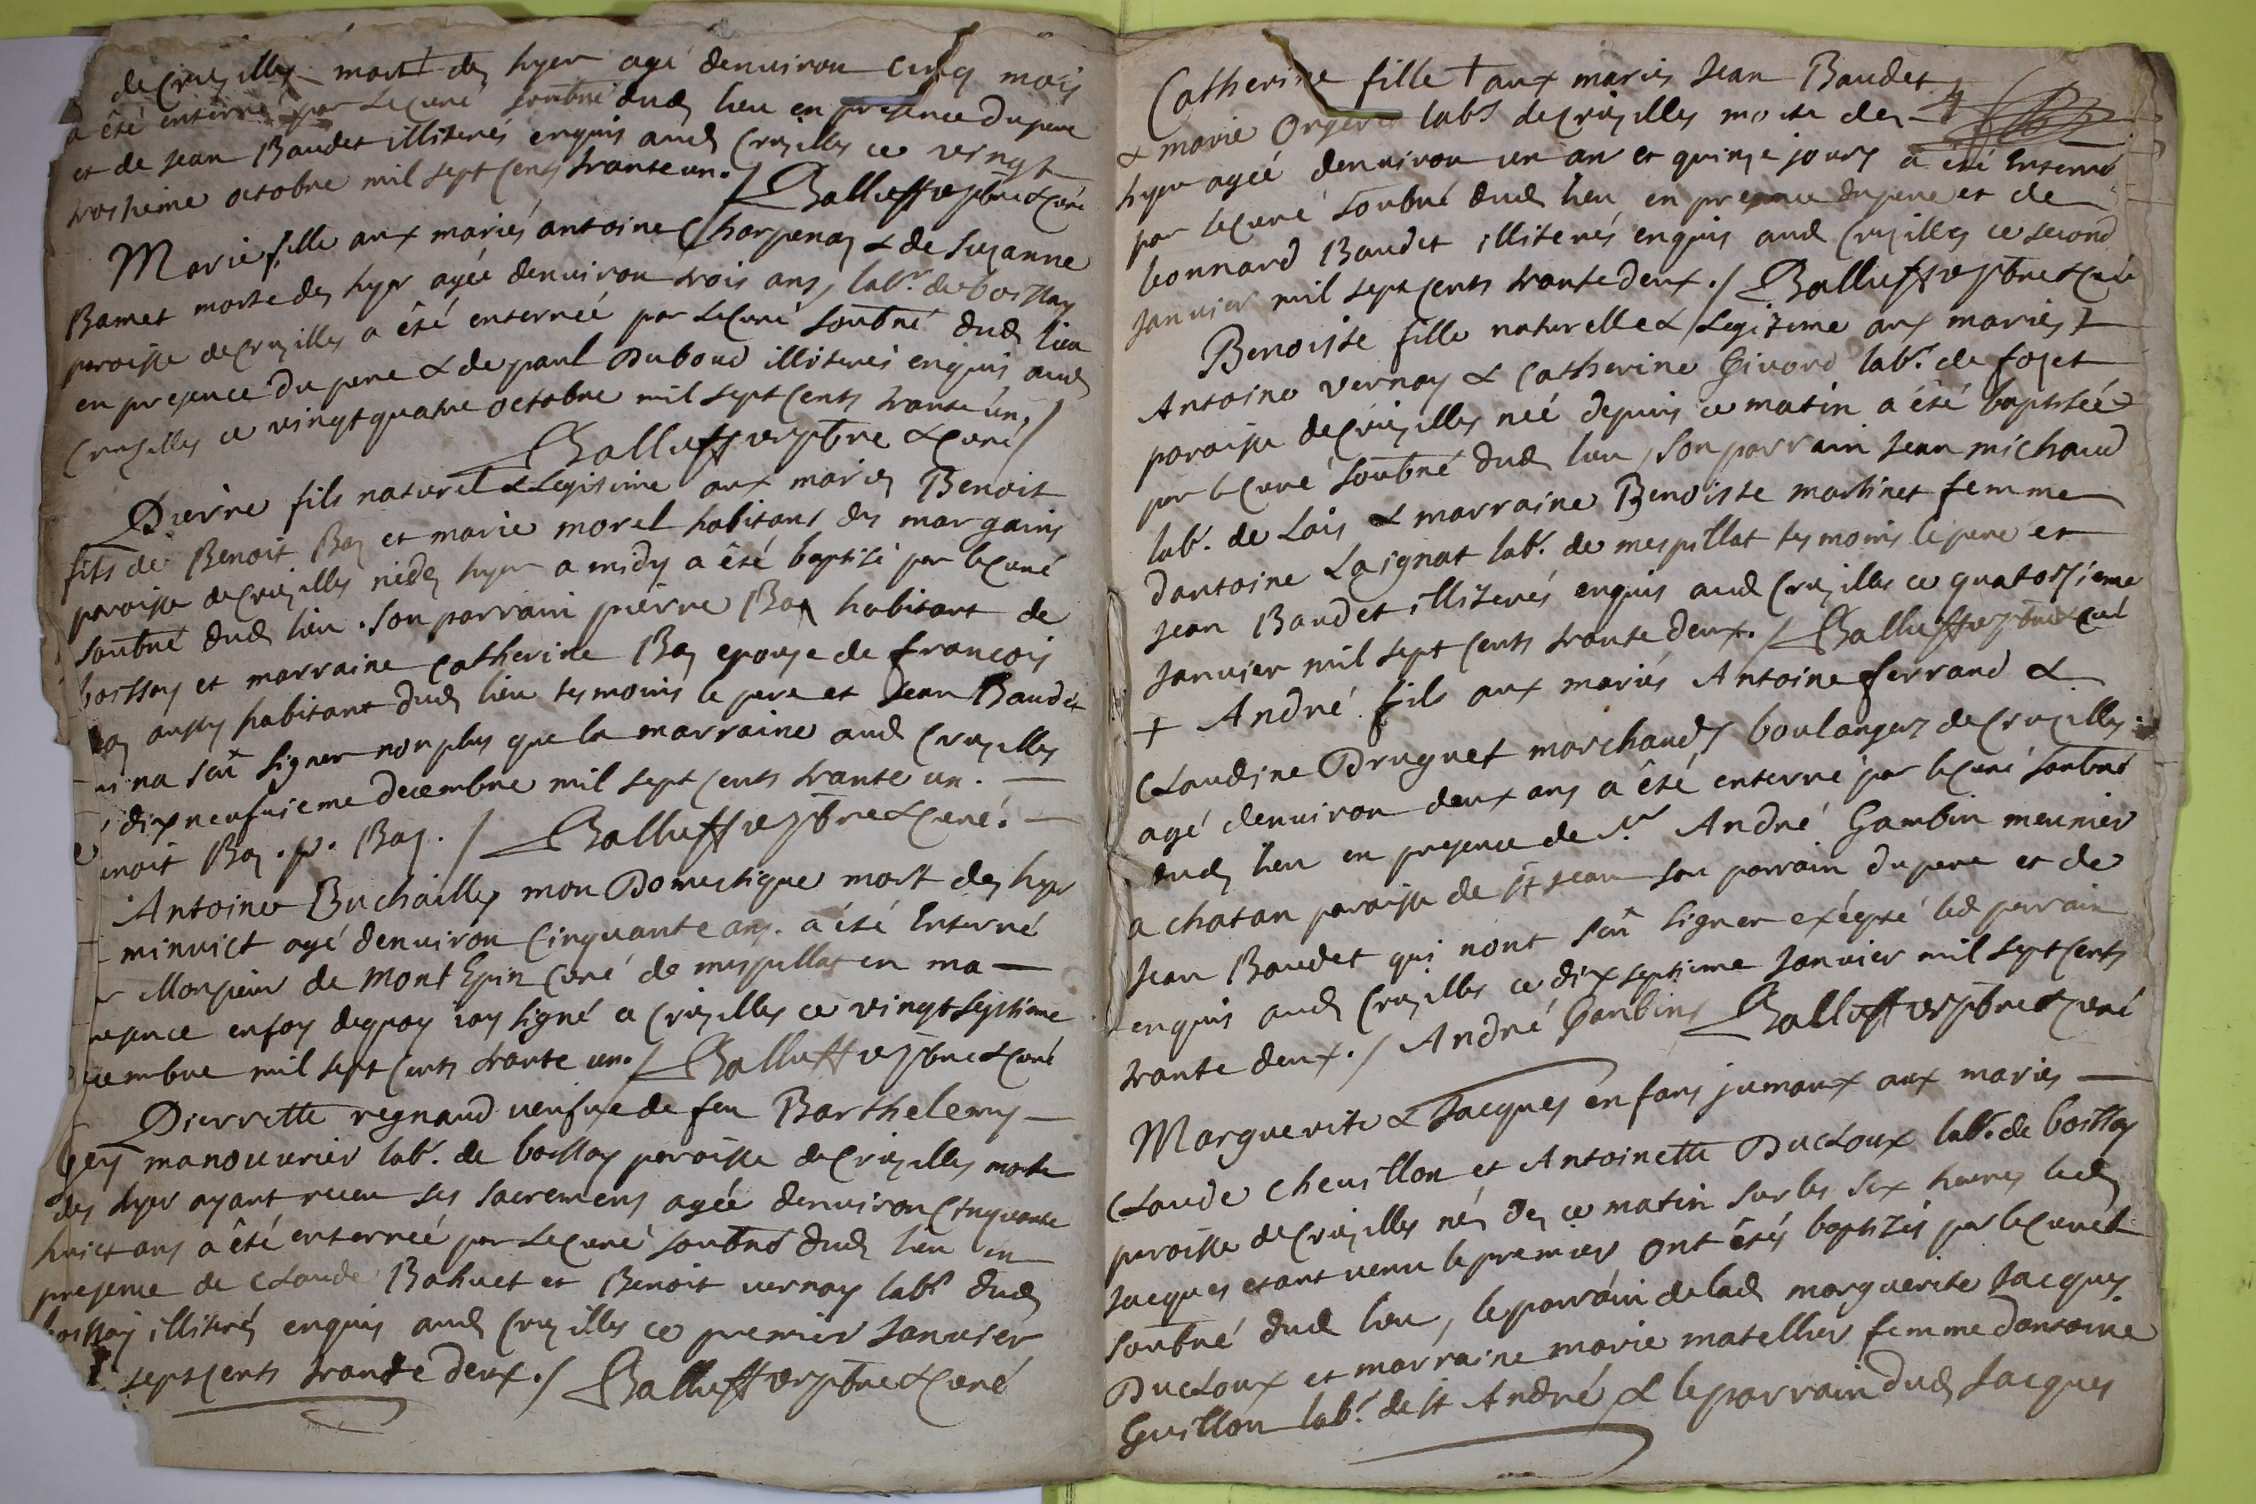 de Cruzilles mort dez hyer agé denuiron cinq mois
a êté enterré par le Curé soubné dud lieu en presence du pere
et de Jean Baudet illiterés enquis aud Cruzilles ce vingt
troisieme octobre mil sept cents trante un. / Balluff vy pbre & Curé
Marie fille aux mariés antoine Charpenay & de Suzanne
Bamet morte dez hyer agée denuiron trois ans, labr. de boissey
paroisse de Cruzilles a êté enterrée par le Curé soubné dud lieu
en presence du pere & de paul Duboud illiterés enquis aud
Cruzilles ce vingt quatre octobre mil sept cents trante un. /
Balluff vy pbre & Curé /
Pierre fils naturel & Legitime aux mariez Benoit
fils de Benoit Baz et marie morel habitans des margains
paroisse de Cruzilles né dez hyer a midy a êté baptisé par le Curé
soubné dud lieu. son parrain pierre Baz habitant de
boissey et marraine Catherine Baz epouse de francois
Baz aussy habitant dud lieu tesmoins le pere et Jean Baudet
ui na sçû signer non plus que la marraine aud Cruzilles
dix neufuieme decembre mil sept cents trante un. —
enoit Baz. p. Baz. / Balluff vy pbre & Curé. —
Antoine Buchailly mon Domestique mort dez hyer
minuict agé denuiron Cinquante ans. a été Enterré
r Monsieur de Mont Epin Curé de mespillat en ma —
resence en foy dequoy iay signé a Cruzilles ce vingt septieme
cembre mil sept cents trante un. / Balluff vy pbre & Curé
Pierrette regnaud veufue de feu Barthelemy —
Gey manouurier labr. de boissey paroisse de Cruzilles morte
dez hyer ayant receu ses sacremens agée denuiron Cinquante
huict ans a êté enterrée par le Curé soubné dud lieu en
presence de Claude Bahuet et Benoit vernay labrs dud
boissey illiterés enquis aud Cruzilles ce premier Januier
sept cents trante deux. / Balluff vy pbre & Curé
Catherine fille aux mariés Jean Baudet
& marie labrs de Cruzilles morte dez
hyer agéé denuiron un an et quinze jours a êté Enterré
par le Curé soubné dud lieu en presence du pere et de
leonnard Baudet illiterés enquis aud Cruzilles ce second
Januier mil sept cents trante deux. / Balluff vy pbre & Curé
Benoiste fille naturelle & Legitime aux mariés
Antoine vernay & Catherine Giuord labr. de foget
paroisse de Cruzilles néé depuis ce matin a été baptiséé
par le Curé soubné dud lieu, son parrain Jean michaud
labr. de Lais & marraine Benoiste martinet femme
dantoine Laignat labr. de mespillat tesmoins le pere et
Jean Baudet illiterés enquis aud Cruzilles ce quatorsieme
Januier mil sept cents trante deux. / Balluff vy pbre & Curé
+ André fils aux mariés Antoine ferrand &
Claudine Druguet marchands boulangers de Cruzilles
agé denuiron deux ans a êté enterré par le Curé soubné
dud lieu en presence de Sr André Gambin meunier
a chatan paroisse de St Jean son parrain du pere et de
Jean Baudet qui nont sçû signer exéqté led parrain
enquis aud Cruzilles ce dix septieme Januier mil sept cents
trante deux. / André Ganbins Balluff vy pbre & Curé
Marguerite & Jacques enfans jumaux aux mariés —
Claude cheuillon et Antoinette Ducloux labr. de boissey
paroisse de Cruzilles nés dez ce matin sur les six heures led
Jacques etant venu le premier ont étés baptizés par le Curé
soubné dud lieu, le parrain de lad marguerite Jacques
Ducloux et marraine marie matellier femme dantoine
Guillon labr. de St André & le parrain dud Jacques